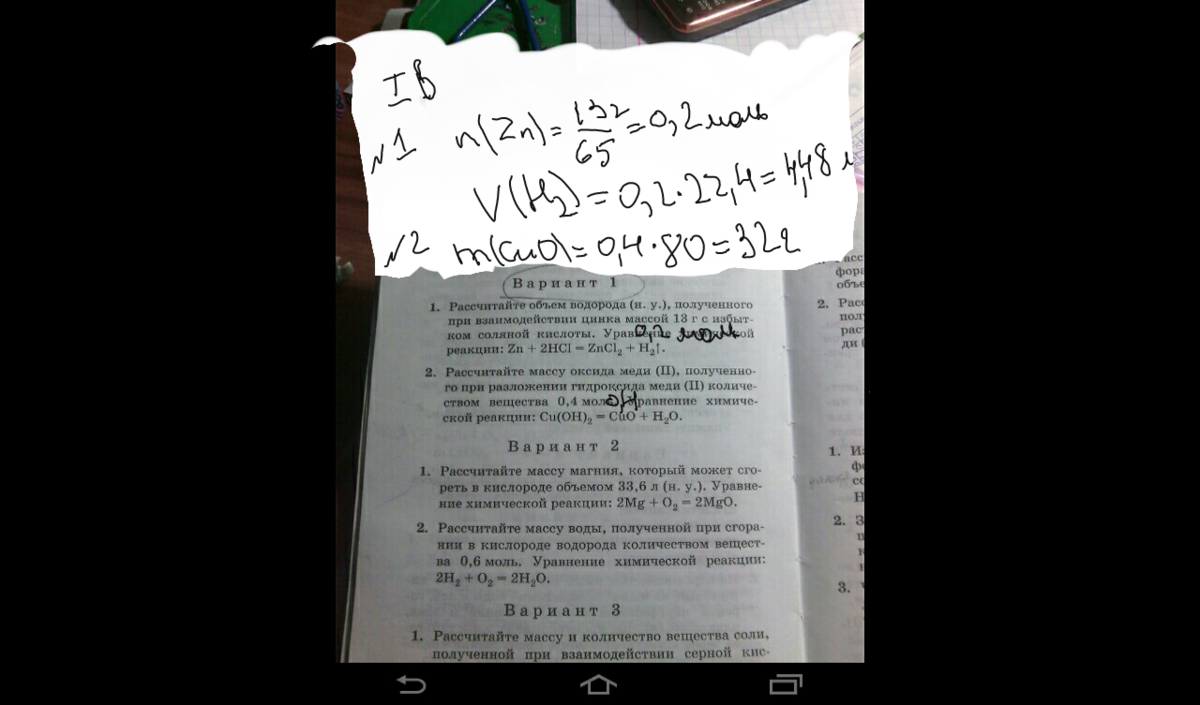 I В
№1 n(Zn) = 13г/65 = 0,2 моль
V(H₂) = 0,2·22,4 = 4,48 л
№2 m(CuO) = 0,4·80 = 32г
Вариант 1
1. Рассчитайте объем водорода (н. у.), полученного
при взаимодействии цинка массой 13 г с избыт-
ком соляной кислоты. Уравнение химической
0,2 моль
реакции: Zn + 2HCl = ZnCl₂ + H₂↑.
2. Рассчитайте массу оксида меди (II), полученно-
го при разложении гидроксида меди (II) количе-
ством вещества 0,4 моль. Уравнение химиче-
0,4
ской реакции: Cu(OH)₂ = CuO + H₂O.
Вариант 2
1. Рассчитайте массу магния, который может сго-
реть в кислороде объемом 33,6 л (н. у.). Уравне-
ние химической реакции: 2Mg + O₂ = 2MgO.
2. Рассчитайте массу воды, полученной при сгора-
нии в кислороде водорода количеством вещест-
ва 0,6 моль. Уравнение химической реакции:
2H₂ + O₂ = 2H₂O.
Вариант 3
1. Рассчитайте массу и количество вещества соли,
полученной при взаимодействии серной кис-
фора
объе
2. Расс
пол
раст
ди (
1.
2.
3.